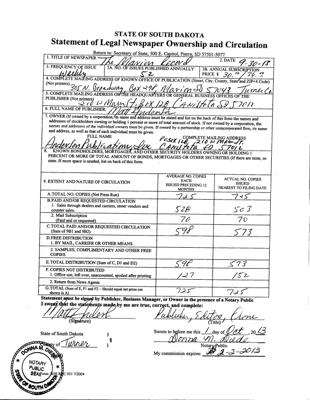 STATE OF SOUTH DAKOTA
Statement of Legal Newspaper Ownership and Circulation
Return to: Secretary of State, 500 E. Capitol, Pierre, SD 57501-5077
1. TITLE OF NEWSPAPER The Marion Record 2. DATE
3. FREQUENCY OF ISSUE Weekly
3A. NO. OF ISSUES PUBLISHED ANNUALLY 52
3B. ANNUAL SUBSCRIPTION PRICE $
4. COMPLETE MAILING ADDRESS OF KNOWN OFFICE OF PUBLICATION (Street, City, County, State and ZIP+4 Code)
(Not printers) Broadway Marion SD 57043 Turner Co.
5. COMPLETE MAILING ADDRESS OF THE HEADQUARTERS OR GENERAL BUSINESS OFFICES OF THE
PUBLISHER (Not printer)
210 W Main SD
6. FULL NAME OF PUBLISHER: Matt
7. OWNER (If owned by a corporation, its name and address must be stated and list on the back of this form the names and
addresses of stockholders owning or holding 1 percent or more of total amount of stock. If not owned by a corporation, the
names and addresses of the individual owners must be given. If owned by a partnership or other unincorporated firm, its name
and address, as well as that of each individual must be given.
COMPLETE MAILING ADDRESS
Publications, Inc
8. KNOWN BONDHOLDERS, MORTGAGEES, AND OTHER SECURITY HOLDERS OWNING OR HOLDING 1
PERCENT OR MORE OF TOTAL AMOUNT OF BONDS, MORTGAGES OR OTHER SECURITIES (If there are none, so
state. If more space is needed, list on back of this form.
9. EXTENT AND NATURE OF CIRCULATION
AVERAGE NO. COPIES EACH ISSUED PRECEDING 12 MONTHS
ACTUAL NO. COPIES ISSUED NEAREST TO FILING DATE
A. TOTAL NO. COPIES (Net Press Run) 725 725
B. PAID AND/OR REQUESTED CIRCULATION
1. Sales through dealers and carriers, street vendors and
counter sales. 528 503
2. Mail Subscription
(Paid and or requested) 70 70
C. TOTAL PAID AND/OR REQUESTED CIRCULATION
(Sum of 9B1 and 9B2) 598 573
D. FREE DISTRIBUTION
1. BY MAIL, CARRIER OR OTHER MEANS
2. SAMPLES, COMPLIMENTARY AND OTHER FREE
COPIES
E. TOTAL DISTRIBUTION (Sum of C, D1 and D2) 598 573
F. COPIES NOT DISTRIBUTED
1. Office use, left over, unaccounted, spoiled after printing 127 152
2. Return from News Agents
G. TOTAL (Sum of E, F1 and F2 - Should equal net press run
shown in A) 725 725
Statement must be signed by Publisher, Business Manager, or Owner in the presence of a Notary Public
I swear that the statements made by me are true, correct, and complete:
Publisher, Editor, Owner
(Signature) (Title)
State of South Dakota )
County of Turner )
Sworn to before me this 1 day of Oct 20 13
Donna M.
Notary Public
My commission expires:
DONNA M.
NOTARY PUBLIC
SEAL
SOUTH DAKOTA